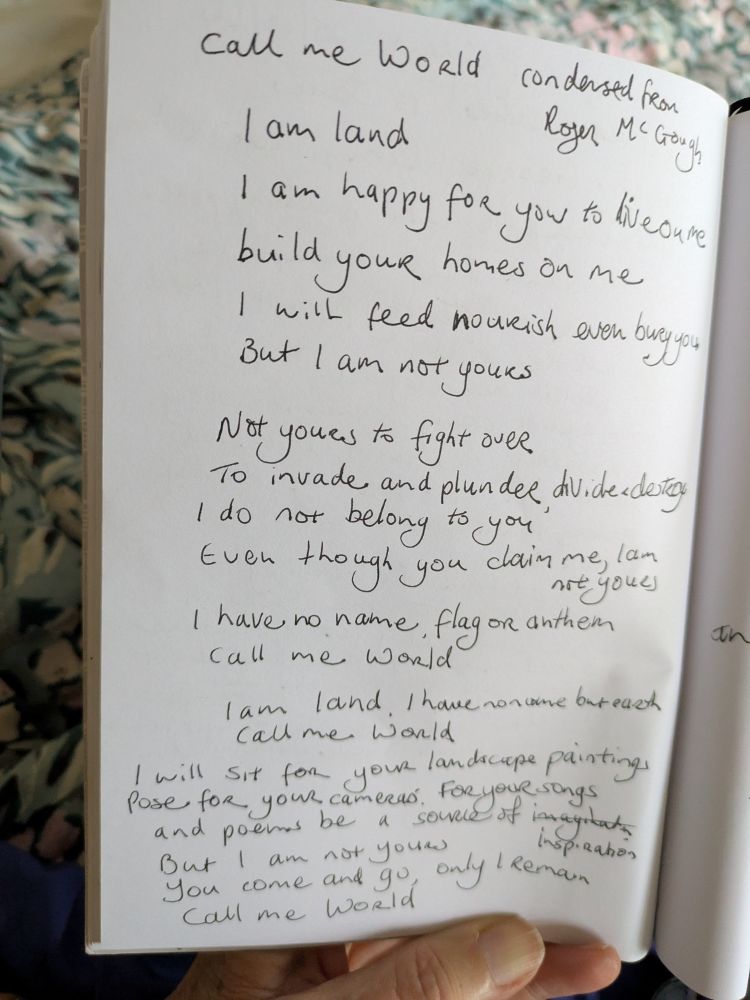 Call me World condensed from
Roger McGough
I am land
I am happy for you to live on me
build your homes on me
I will feed nourish even bury you
But I am not yours
Not yours to fight over
To invade and plunder, divide & destroy
I do not belong to you
Even though you claim me, I am
not yours
I have no name, flag or anthem
Call me World
I am land. I have no name but earth
Call me World
I will sit for your landscape paintings
Pose for your cameras. For your songs
and poems be a source of
inspiration
But I am not yours
You come and go, only I Remain
Call me World
in